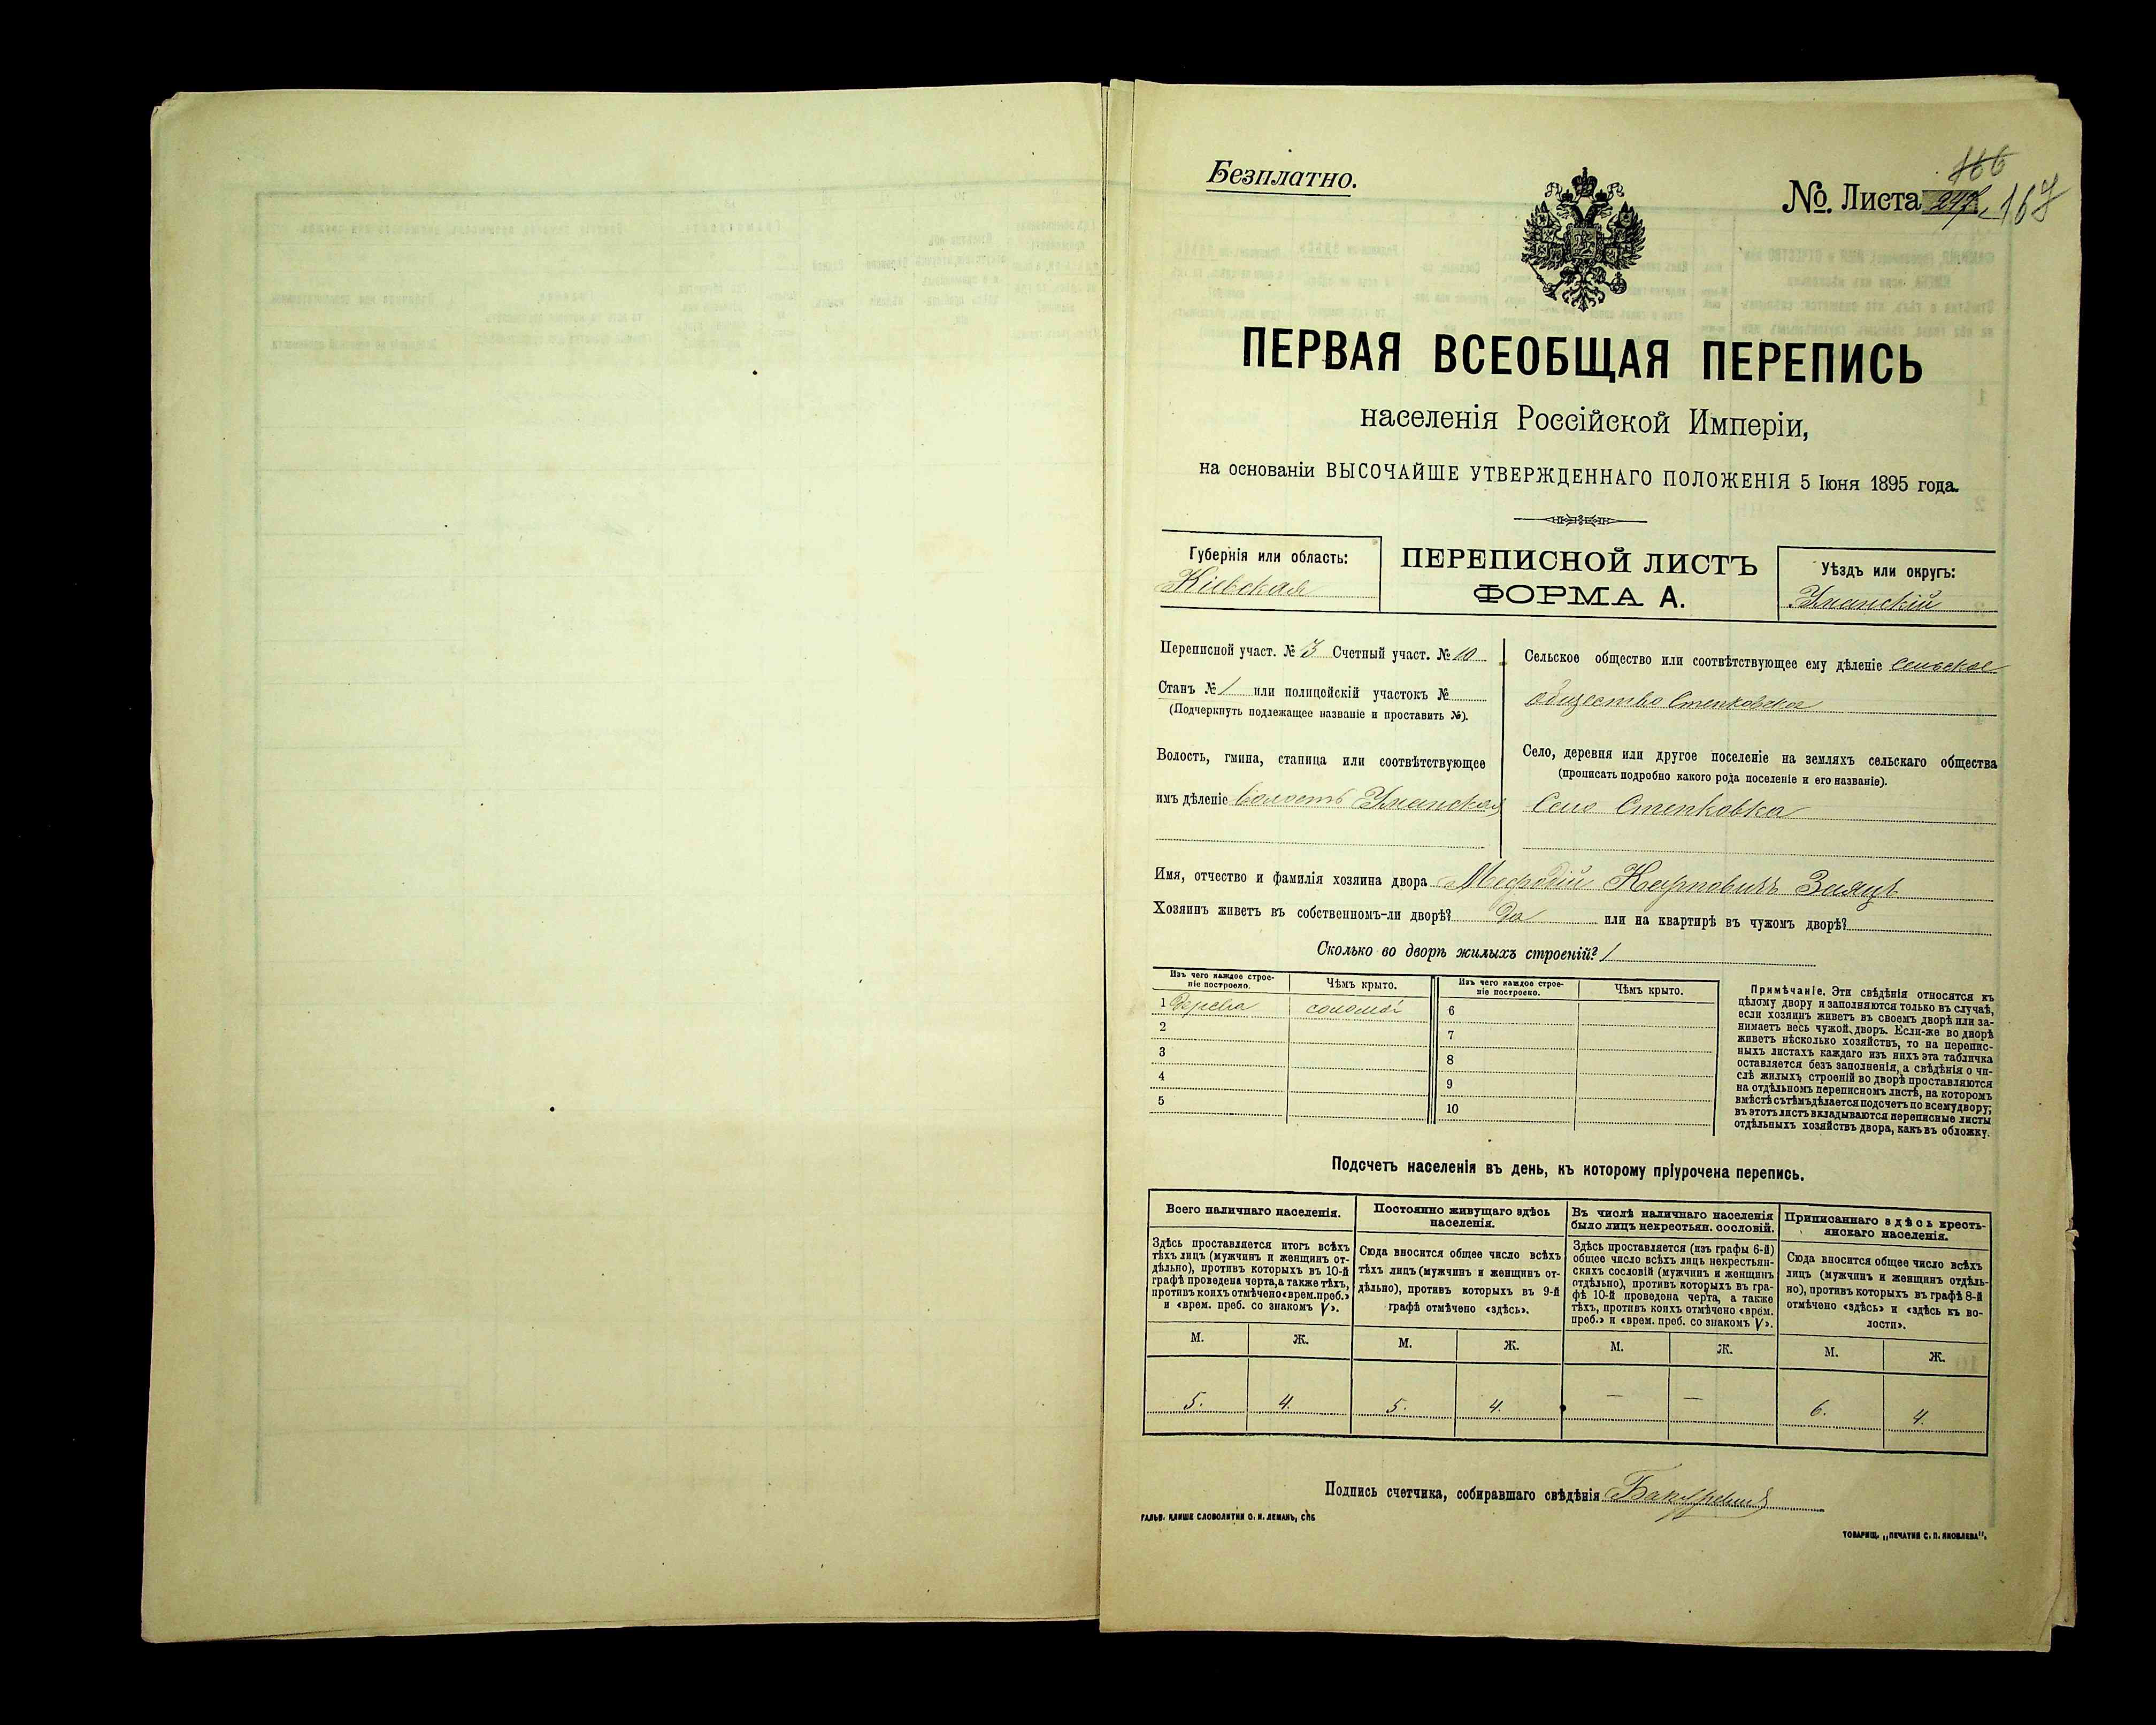 Безплатно.
166
№. Листа 167
ПЕРВАЯ ВСЕОБЩАЯ ПЕРЕПИСЬ
населенія Россійской Имперіи,
на основаніи ВЫСОЧАЙШЕ УТВЕРЖДЕННАГО ПОЛОЖЕНІЯ 5 Іюня 1895 года.
Губернія или область:
Кіевская
ПЕРЕПИСНОЙ ЛИСТЪ
ФОРМА А.
Уѣздъ или округъ:
Уманскій
Переписной участ. № 3 Счетный участ. № 10
Станъ № 1 или полицейскій участокъ №
(Подчеркнуть подлежащее названіе и проставить №).
Волость, гмина, станица или соотвѣтствующее
имъ дѣленіе волость Уманская
Сельское общество или соотвѣтствующее ему дѣленіе сельское
общество Степковское
Село, деревня или другое поселеніе на земляхъ сельскаго общества
(прописать подробно какого рода поселеніе и его названіе).
Село Степковка
Имя, отчество и фамилія хозяина двора Мефодій Карповичъ Заяцъ
Хозяинъ живетъ въ собственномъ-ли дворѣ? Да или на квартирѣ въ чужомъ дворѣ?
Сколько во дворѣ жилыхъ строеній? 1
Изъ чего каждое строе-
ніе построено.
Чѣмъ крыто.
Изъ чего каждое строе-
ніе построено.
Чѣмъ крыто.
1 Дерева соломой 6
2 7
3 8
4 9
5 10
Примѣчаніе. Эти свѣдѣнія относятся къ
цѣлому двору и заполняются только въ случаѣ,
если хозяинъ живетъ въ своемъ дворѣ или за-
нимаетъ весь чужой дворъ. Если-же во дворѣ
живетъ нѣсколько хозяйствъ, то на перепис-
ныхъ листахъ каждаго изъ нихъ эта табличка
оставляется безъ заполненія, а свѣдѣнія о чи-
слѣ жилыхъ строеній во дворѣ проставляются
на отдѣльномъ переписномъ листѣ, на которомъ
вмѣстѣ съ тѣмъ дѣлается подсчетъ по всему двору;
въ этотъ листъ вкладываются переписные листы
отдѣльныхъ хозяйствъ двора, какъ въ обложку.
Подсчетъ населенія въ день, къ которому пріурочена перепись.
Всего наличнаго населенія.
Здѣсь проставляется итогъ всѣхъ
тѣхъ лицъ (мужчинъ и женщинъ от-
дѣльно), противъ которыхъ въ 10-й
графѣ проведена черта, а также тѣхъ,
противъ коихъ отмѣчено «врем. преб.»
и «врем. преб. со знакомъ V».
Постоянно живущаго здѣсь
населенія.
Сюда вносится общее число всѣхъ
тѣхъ лицъ (мужчинъ и женщинъ от-
дѣльно), противъ которыхъ въ 9-й
графѣ отмѣчено «здѣсь».
Въ числѣ наличнаго населенія
было лицъ некрестьян. сословій.
Здѣсь проставляется (изъ графы 6-й)
общее число всѣхъ лицъ некрестьян-
скихъ сословій (мужчинъ и женщинъ
отдѣльно), противъ которыхъ въ гра-
фѣ 10-й проведена черта, а также
тѣхъ, противъ коихъ отмѣчено «врем.
преб.» и «врем. преб. со знакомъ V».
Приписаннаго здѣсь кресть-
янскаго населенія.
Сюда вносится общее число всѣхъ
лицъ (мужчинъ и женщинъ отдѣль-
но), противъ которыхъ въ графѣ 8-й
отмѣчено «здѣсь» и «здѣсь къ во-
лости».
М. Ж. М. Ж. М. Ж. М. Ж.
5. 4. 5. 4. — — 6. 4.
Подпись счетчика, собиравшаго свѣдѣнія
ГАЛЬВ. КЛИШЕ СЛОВОЛИТНИ О. И. ЛЕМАНЪ, СПБ
ТОВАРИЩ. „ПЕЧАТНЯ С. П. ЯКОВЛЕВА".